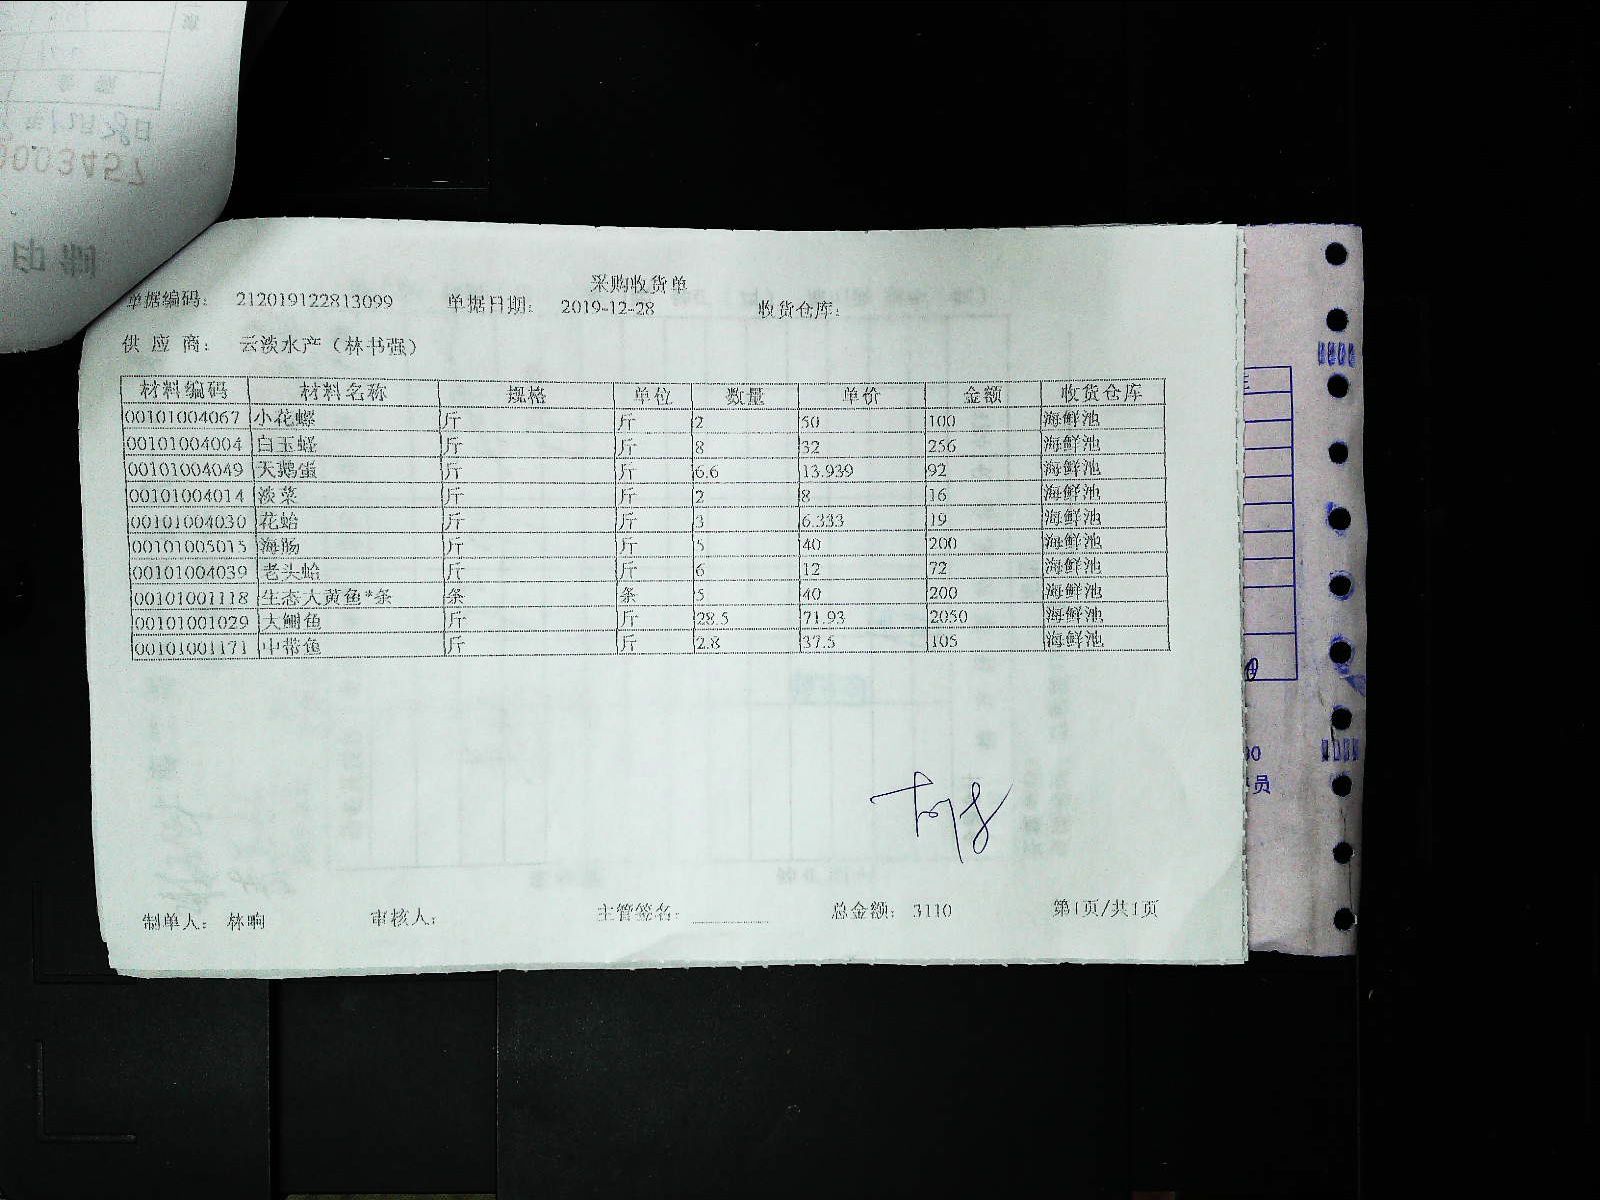 采购收货单
单据编码： 212019122813099 单据日期： 2019-12-28 收货仓库：
供 应 商： 云淡水产（林书强）
材料编码 材料名称 规格 单位 数量 单价 金额 收货仓库
00101004067 小花螺 斤 斤 2 50 100 海鲜池
00101004004 白玉蛏 斤 斤 8 32 256 海鲜池
00101004049 天鹅蛋 斤 斤 6.6 13.939 92 海鲜池
00101004014 淡菜 斤 斤 2 8 16 海鲜池
00101004030 花蛤 斤 斤 3 6.333 19 海鲜池
00101005015 海肠 斤 斤 5 40 200 海鲜池
00101004039 老头蛤 斤 斤 6 12 72 海鲜池
00101001118 生态大黄鱼*条 条 条 5 40 200 海鲜池
00101001029 大鲷鱼 斤 斤 28.5 71.93 2050 海鲜池
00101001171 中带鱼 斤 斤 2.8 37.5 105 海鲜池
制单人： 林晌 审核人： 主管签名： 总金额： 3110 第1页/共1页